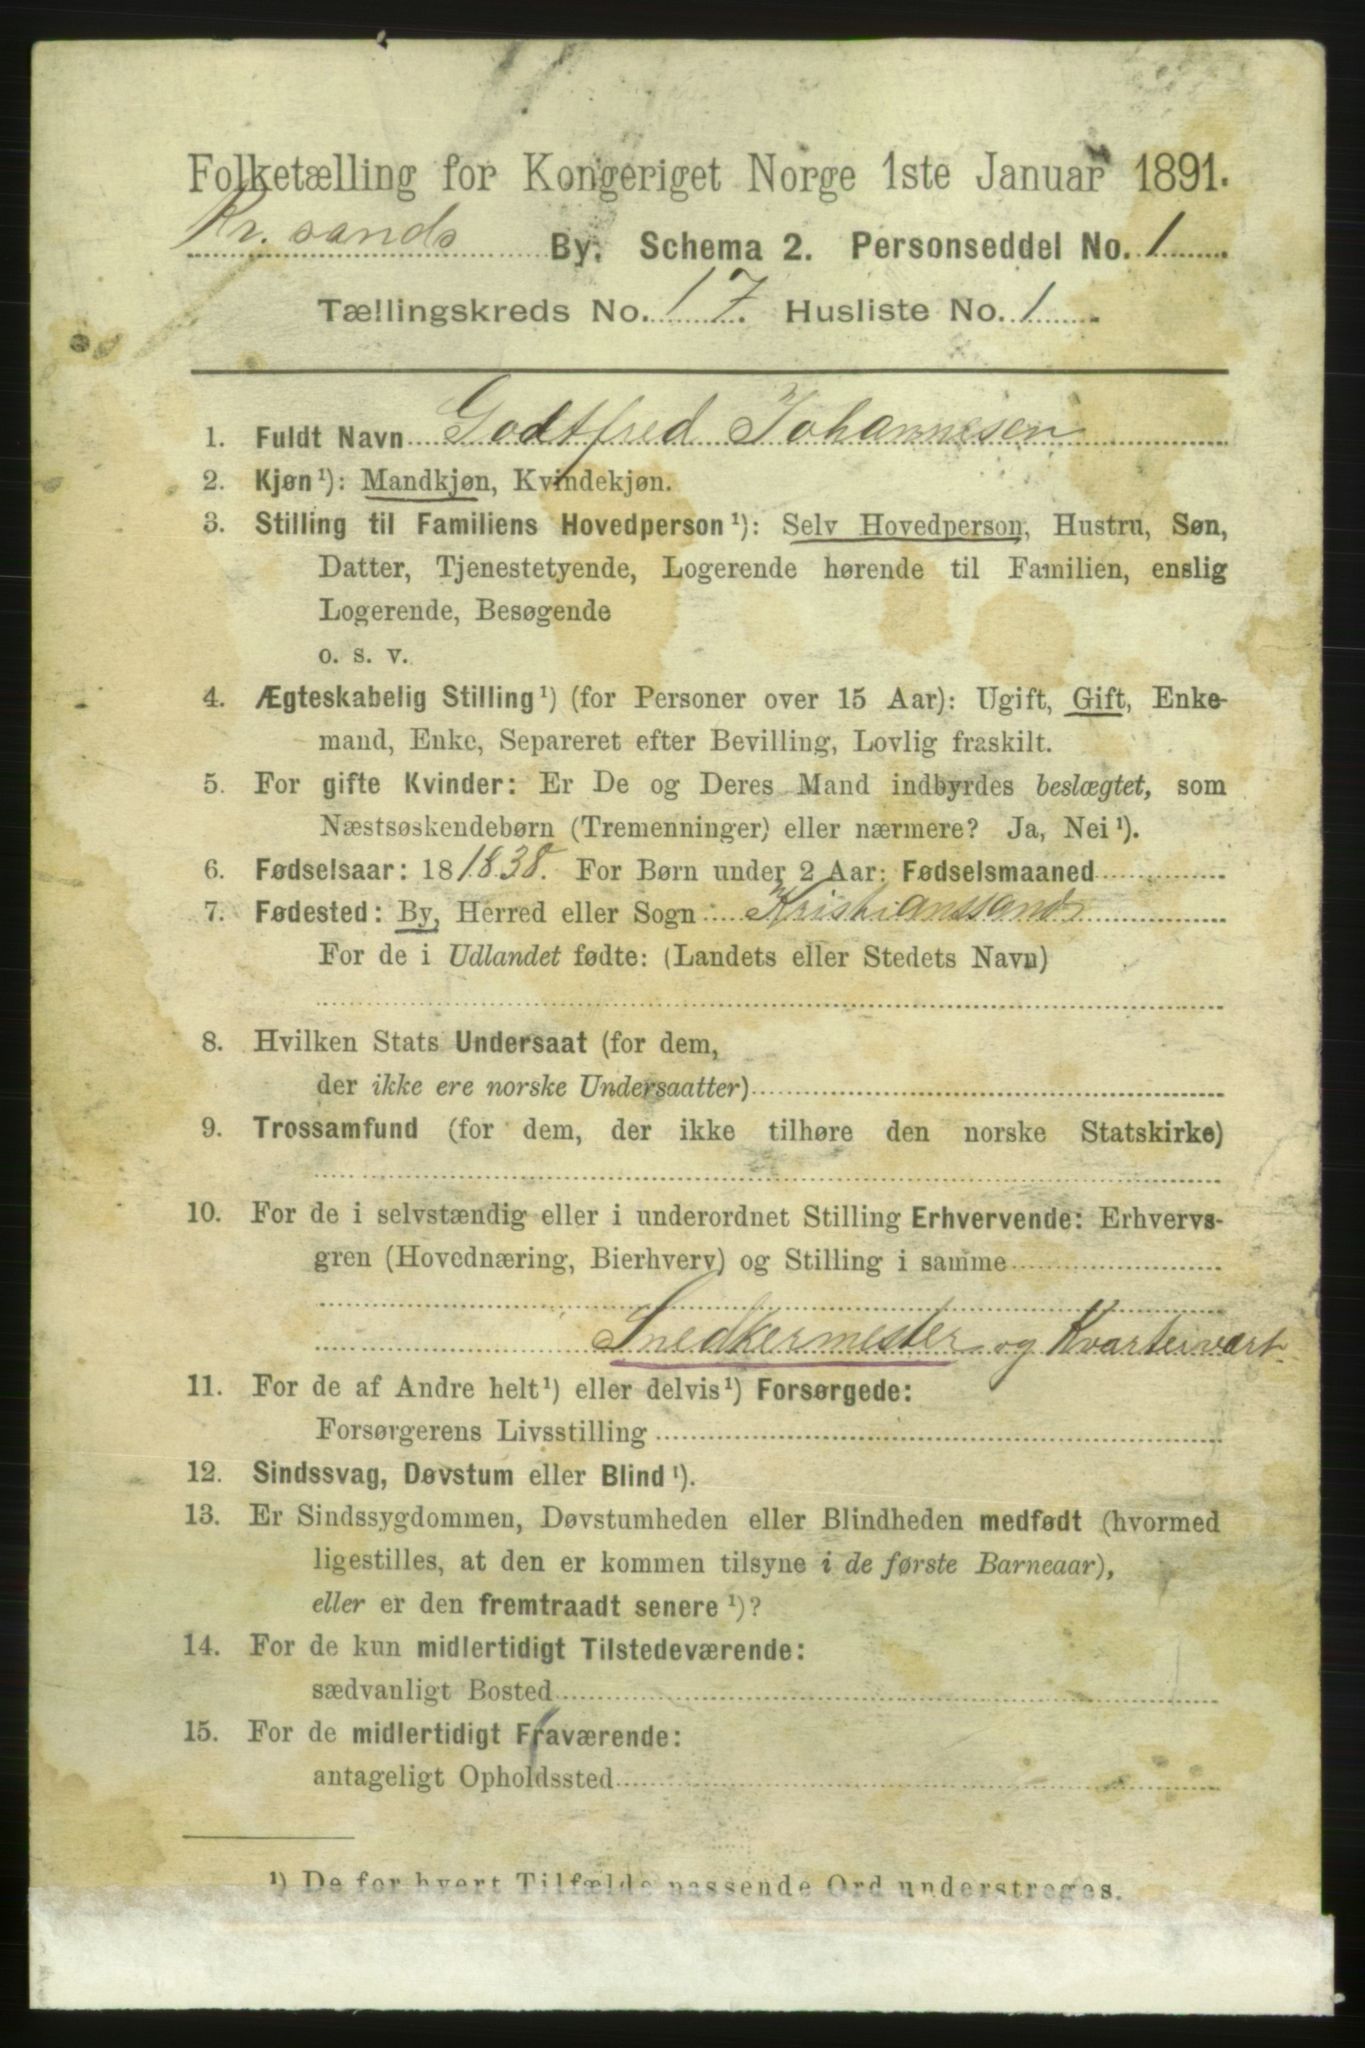 Folketælling for Kongeriget Norge 1ste Januar 1891.
Kr. sands By. Schema 2. Personseddel No. 1
Tællingskreds No. 17. Husliste No. 1
1. Fuldt Navn Godtfred Johannesen
2. Kjøn¹): Mandkjøn, Kvindekjøn.
3. Stilling til Familiens Hovedperson¹): Selv Hovedperson, Hustru, Søn,
Datter, Tjenestetyende, Logerende hørende til Familien, enslig
Logerende, Besøgende
o. s. v.
4. Ægteskabelig Stilling¹) (for Personer over 15 Aar): Ugift, Gift, Enke-
mand, Enke, Separeret efter Bevilling, Lovlig fraskilt.
5. For gifte Kvinder: Er De og Deres Mand indbyrdes beslægtet, som
Næstsøskendebørn (Tremenninger) eller nærmere? Ja, Nei¹).
6. Fødselsaar: 18 1838. For Børn under 2 Aar: Fødselsmaaned
7. Fødested: By, Herred eller Sogn: Kristianssand
For de i Udlandet fødte: (Landets eller Stedets Navn)
8. Hvilken Stats Undersaat (for dem,
der ikke ere norske Undersaatter)
9. Trossamfund (for dem, der ikke tilhøre den norske Statskirke)
10. For de i selvstændig eller i underordnet Stilling Erhvervende: Erhvervs-
gren (Hovednæring, Bierhverv) og Stilling i samme
Snedkermester og Kvartervært
11. For de af Andre helt¹) eller delvis¹) Forsørgede:
Forsørgerens Livsstilling
12. Sindssvag, Døvstum eller Blind¹).
13. Er Sindssygdommen, Døvstumheden eller Blindheden medfødt (hvormed
ligestilles, at den er kommen tilsyne i de første Barneaar),
eller er den fremtraadt senere¹)?
14. For de kun midlertidigt Tilstedeværende:
sædvanligt Bosted
15. For de midlertidigt Fraværende:
antageligt Opholdssted
¹) De for hvert Tilfælde passende Ord understreges.